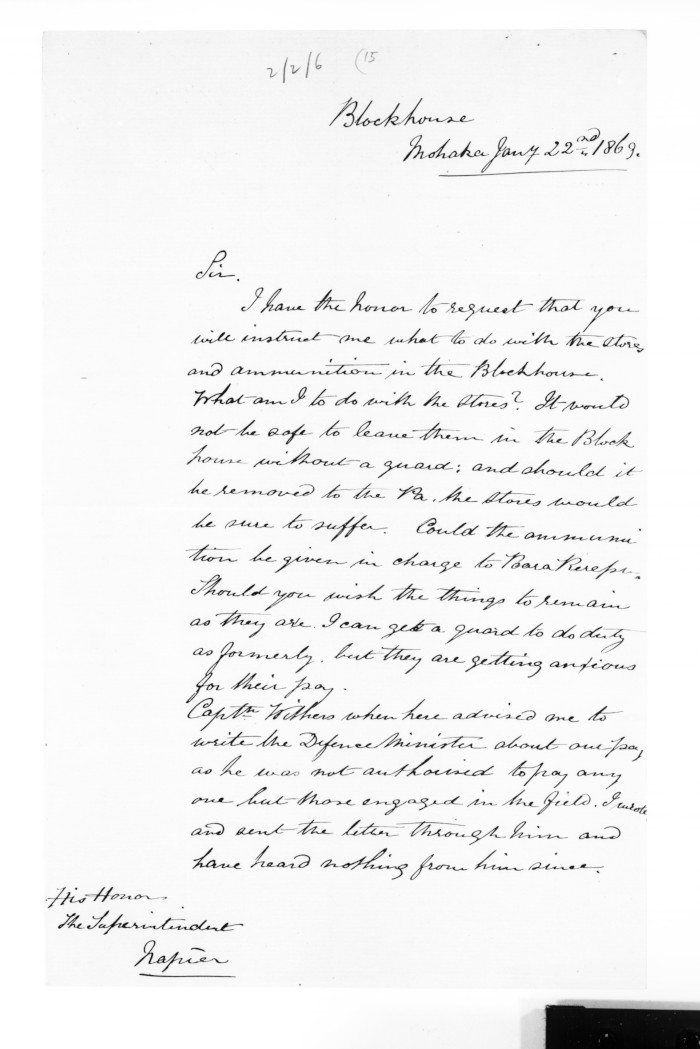 2/2/6 (15
Blockhouse
Mohaka Jany 22nd 1869.
Sir.
I have the honor to request that you
will instruct me what to do with the stores
and ammunition in the Blockhouse.
What am I to do with the stores? It would
not be safe to leave them in the Block
house without a guard; and should it
be removed to the Pa, the stores would
be sure to suffer. Could the ammuni
tion be given in charge to
Should you wish the things to remain
as they are. I can get a guard to do duty
as formerly, but they are getting anxious
for their pay.
Captn Withers when here advised me to
write the Defence Minister about our pay
as he was not authorised to pay any
one but those engaged in the field. I wrote
and sent the letter through him and
have heard nothing from him since.
His Honor
The Superintendent
Napier